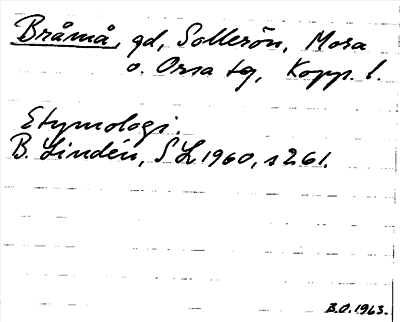 Bråmå, gd, Sollerön, Mora
o. Orsa tg, Kopp. l.
Etymologi.
B. Lindén, SL 1960, s 261.
B.O. 1963.